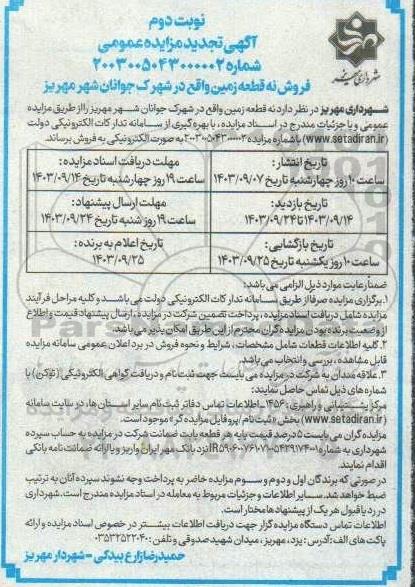 نوبت دوم
آگهی تجدید مزایده عمومی
شماره ۲۰۰۳۰۰۵۰۴۳۰۰۰۰۰۲
فروش نه قطعه زمین واقع در شهرک جوانان شهر مهریز
شهرداری مهریز
شهرداری مهریز در نظر دارد نه قطعه زمین واقع در شهرک جوانان شهر مهریز را از طریق مزایده
عمومی و با جزئیات مندرج در اسناد مزایده، با بهره گیری از سامانه تدارکات الکترونیکی دولت
(www.setadiran.ir) با شماره مزایده ۲۰۰۳۰۰۵۰۴۳۰۰۰۰۰۲ به صورت الکترونیکی به فروش برساند.
تاریخ انتشار: مهلت دریافت اسناد مزایده:
ساعت ۱۰ روز چهارشنبه تاریخ ۱۴۰۳/۰۹/۰۷ ساعت ۱۹ روز چهارشنبه تاریخ ۱۴۰۳/۰۹/۱۴
تاریخ بازدید: مهلت ارسال پیشنهاد:
۱۴۰۳/۰۹/۱۴ تا ۱۴۰۳/۰۹/۲۴ ساعت ۱۹ روز شنبه تاریخ ۱۴۰۳/۰۹/۲۴
تاریخ بازگشایی: تاریخ اعلام به برنده:
ساعت ۱۰ روز یکشنبه تاریخ ۱۴۰۳/۰۹/۲۵ ۱۴۰۳/۰۹/۲۵
ضمنا رعایت موارد ذیل الزامی می باشد:
۱. برگزاری مزایده صرفا از طریق سامانه تدارکات الکترونیکی دولت می باشد و کلیه مراحل فرآیند
مزایده شامل دریافت اسناد مزایده، پرداخت تضمین شرکت در مزایده، ارسال پیشنهاد قیمت و اطلاع
از وضعیت برنده بودن مزایده گران محترم از این طریق امکان پذیر می باشد.
۲. کلیه اطلاعات قطعات شامل مشخصات، شرایط و نحوه فروش در برد اعلان عمومی سامانه مزایده
قابل مشاهده، بررسی و انتخاب می باشد.
۳. علاقه مندان به شرکت در مزایده می بایست جهت ثبت نام و دریافت گواهی الکترونیکی (توکن) با
شماره های ذیل تماس حاصل نمایند:
مرکز پشتیبانی و راهبری: ۱۴۵۶، اطلاعات تماس دفاتر ثبت نام سایر استان ها، در سایت سامانه
(www.setadiran.ir) بخش «ثبت نام/پروفایل مزایده گر» موجود است.
مزایده گران می بایست ۵ درصد قیمت پایه هر قطعه بابت ضمانت شرکت در مزایده به حساب سپرده
شهرداری به شماره نزد بانک مهر ایران واریز و یا ارائه ضمانت نامه بانکی
اقدام نمایند.
در صورتی که برندگان اول و دوم و سوم مزایده حاضر به پرداخت وجه نشوند سپرده آنان به ترتیب
ضبط خواهد شد. سایر اطلاعات و جزئیات مربوط به معامله در اسناد مزایده مندرج است. شهرداری
در رد یا قبول هر یک از پیشنهادها مختار است.
اطلاعات تماس دستگاه مزایده گزار جهت دریافت اطلاعات بیشتر در خصوص اسناد مزایده و ارائه
پاکت های الف: آدرس: یزد، مهریز، میدان شهید صدوقی و تلفن: ۰۳۵۳۲۵۲۲۰۴۰
حمیدرضا زارع بیدکی - شهردار مهریز